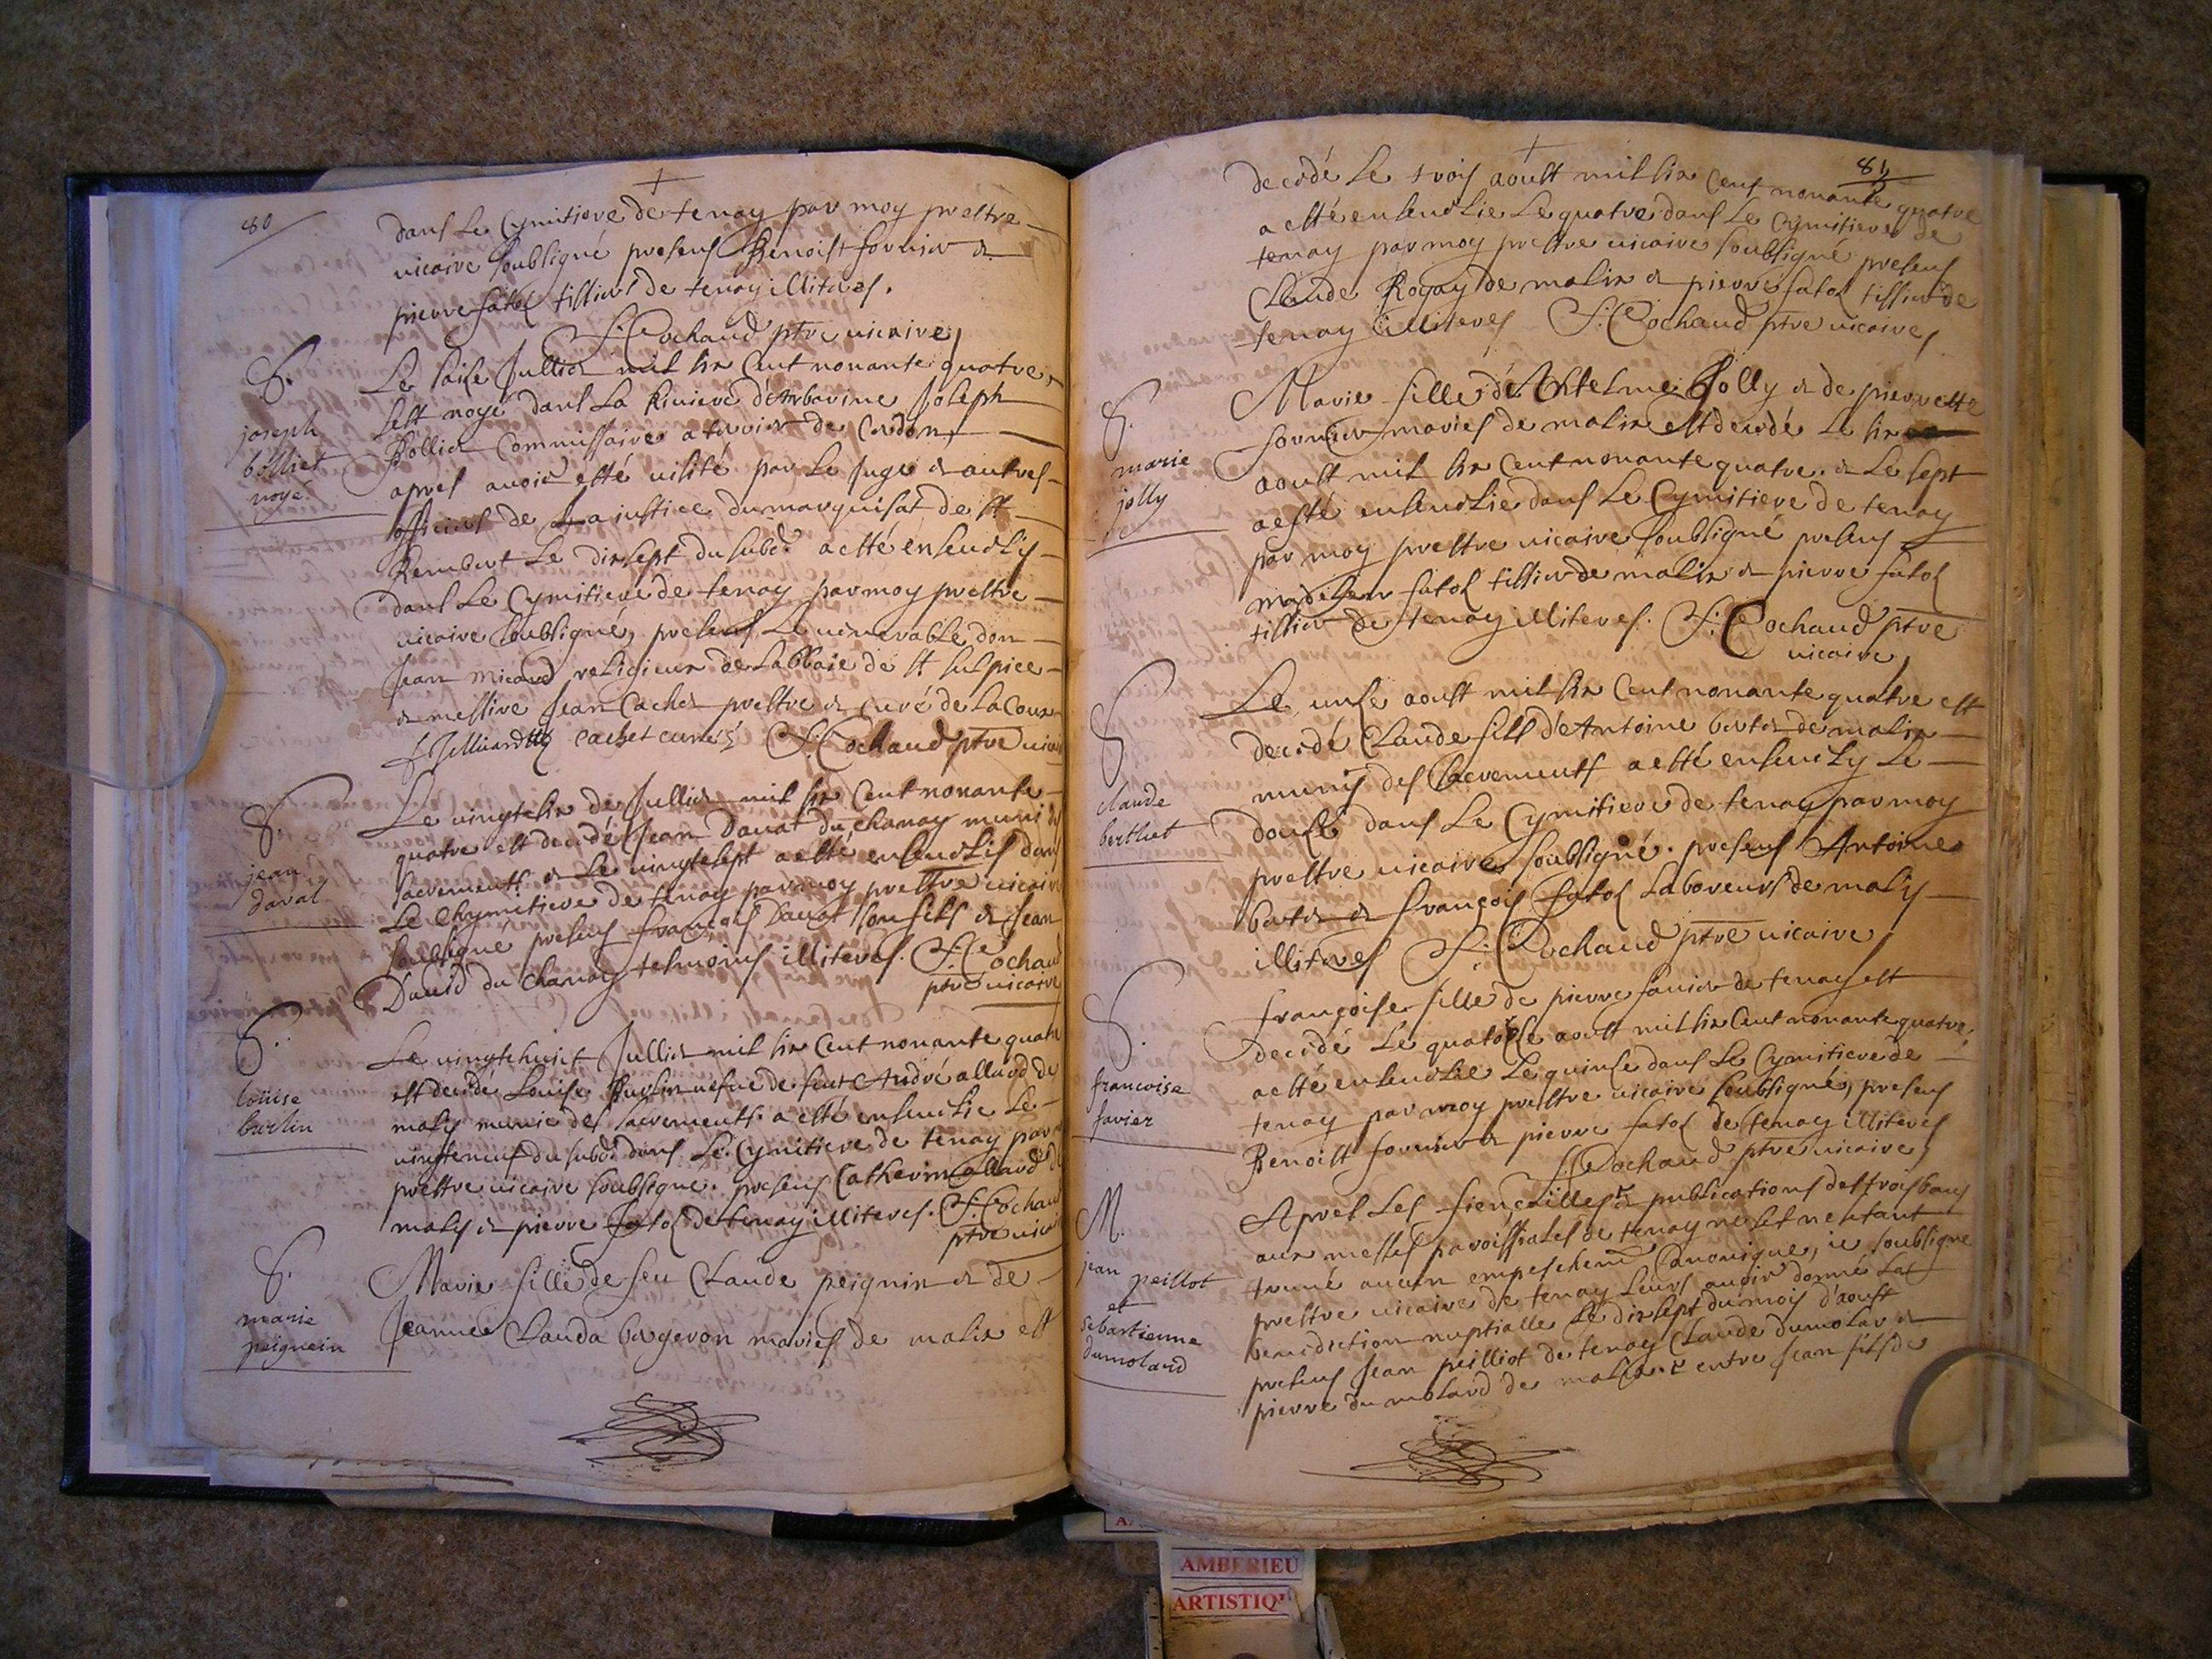 80
dans le Cymitiere de tenay par moy prestre
vicaire soubsigné presens Benoist fornier &
pierre fatol tissier de tenay illiteres.
F. Cochaud ptre vicaire
S.
joseph
bolliet
noyé
Le saise Julliet mil six Cent nonante quatre
sest noyé dans la Riviere d'Arbarine Joseph
Bolliet Commissaire a terrier de Cerdon,
apres avoir esté visité par le Juge & autres
officiers de la justice du marquisat de st
Rembert le dixsept du subd. a esté ensevely
dans le Cymitiere de tenay par moy prestre
vicaire soubsigné, presens le venerable don
Jean micard religieux de labbaie de st sulpice
& messire Jean Cachet prestre & curé de la Coux
cachet curé F. Cochaud ptre vicaire
S.
jean
davat
Le vingtsix de Julliet mil six Cent nonante
quatre est decedé Jean Davat du Chanay muni des
sacrements & le vingtsept a esté ensevelis dans
le Chymitiere de tenay par moy prestre vicaire
soubsigné presens françois Davat son fils & Jean
David du Chanay tesmoins illiteres. F. Cochaud
ptre vicaire
S.
loüise
burlin
Le vingthuict Julliet mil six Cent nonante quatre
est decedé Louise Burlin vefve de feut André allard de
malix munie des sacrements. a esté ensevelie le
vingtneuf du subd. dans le Cymitiere de tenay par moy
prestre vicaire soubsigné. presens Catherin allard de
malix & pierre fatol de tenay illiteres. F. Cochaud
ptre vicaire
S.
marie
peignein
Marie fille de feu Claude peignin & de
Jeanne Clauda bergeron mariés de malix est
81
decedé le trois aoust mil six Cens nonante quatre
a esté ensevelie le quatre dans le Cymitiere de
tenay par moy prestre vicaire soubsigné presens
Claude Rogay de malix & pierre fatol tissier de
tenay illiteres F. Cochaud ptre vicaire
S.
marie
jolly
Marie fille d'Anthelme Jolly & de pierrette
fornier mariés de malix est decedé le six
aoust mil six Cent nonante quatre. & le sept
a esté ensevelie dans le Cymitiere de tenay
par moy prestre vicaire soubsigné presens
fatol tissier de malix & pierre fatol
tissier de tenay illiteres. F. Cochaud ptre
vicaire
S.
claude
berthet
Le unze aoust mil six Cent nonante quatre est
decedé Claude fils d'Antoine bertet de malix
munis des sacrements a esté ensevely le
douze dans le Cymitiere de tenay par moy
prestre vicaire soubsigné. presens Antoine
bertet & françois fatol laboreurs de malix
illiteres F. Cochaud ptre vicaire
S.
francoise
favier
françoise fille de pierre favier de tenay est
decedé le quatorze aoust mil six Cent nonante quatre,
a esté ensevelie le quinze dans le Cymitiere de
tenay par moy prestre vicaire soubsigné, presens
Benoist fornier & pierre fatol de tenay illiteres
F. Cochaud ptre vicaire
M.
jean
peillot
et
sebastienne
dumolard
Apres les fiençailles & publications des trois bans
aux messes paroissiales de tenay ne set nestant
treuvé aucun empeschent Canonique, ie soubsigne
prestre vicaire de tenay leurs avoir donné la
benediction nuptialle le dixsept du mois d'aoust
presens Jean peilliot de tenay Claude dumolar &
pierre du molard de malix. entre Jean fils de
AMBERIEU
ARTISTIQ